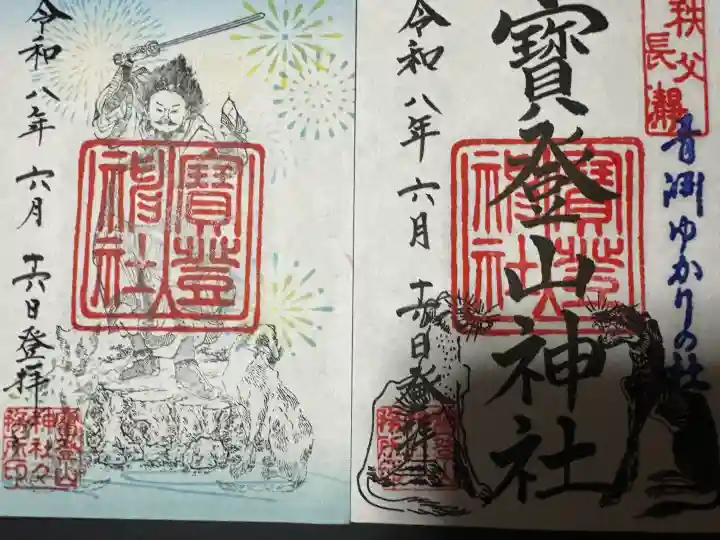 令和八年六月十六日登拝
寶登山神社
寶登山神社々務所印
秩父
長瀞
青淵ゆかりの社
寶登山神社
寶登山神社
令和八年六月十六日登拝